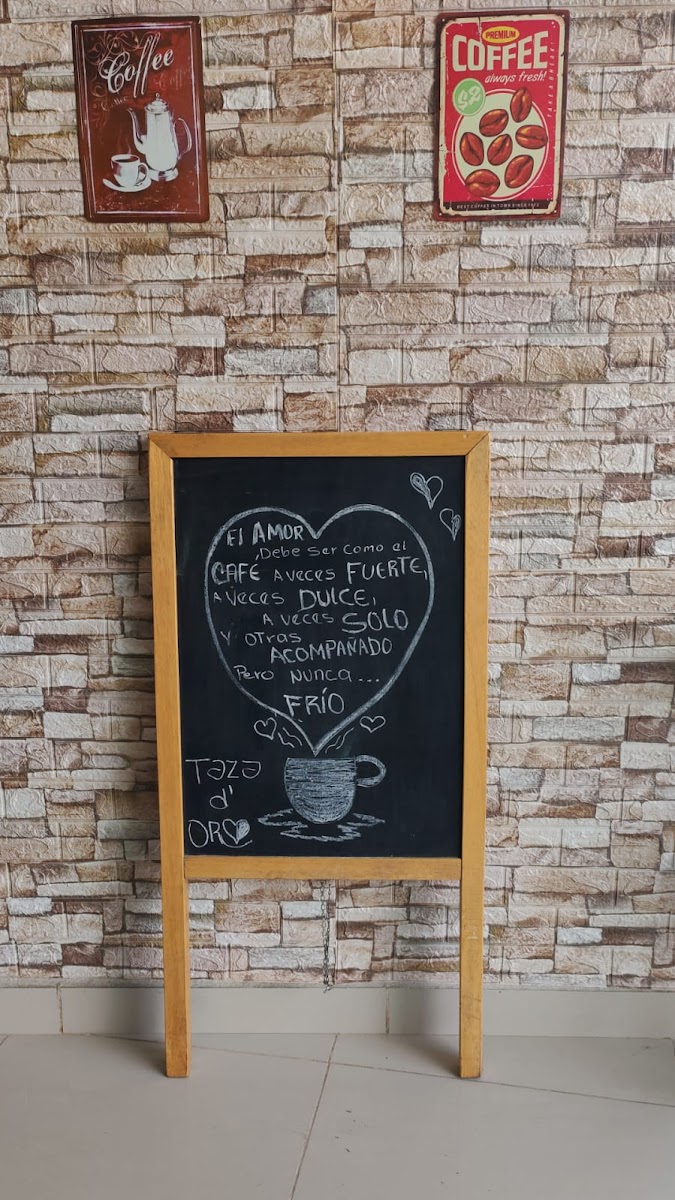 Coffee
PREMIUM
COFFEE
always fresh!
$2
TAKEAWAY!
BEST COFFEE IN TOWN SINCE 1970
El AMOR
Debe ser como el
CAFÉ A veces FUERTE,
A veces DULCE,
A veces SOLO
Y OTRAS
ACOMPAÑADO
Pero NUNCA...
FRÍO
Taza
d'
ORO